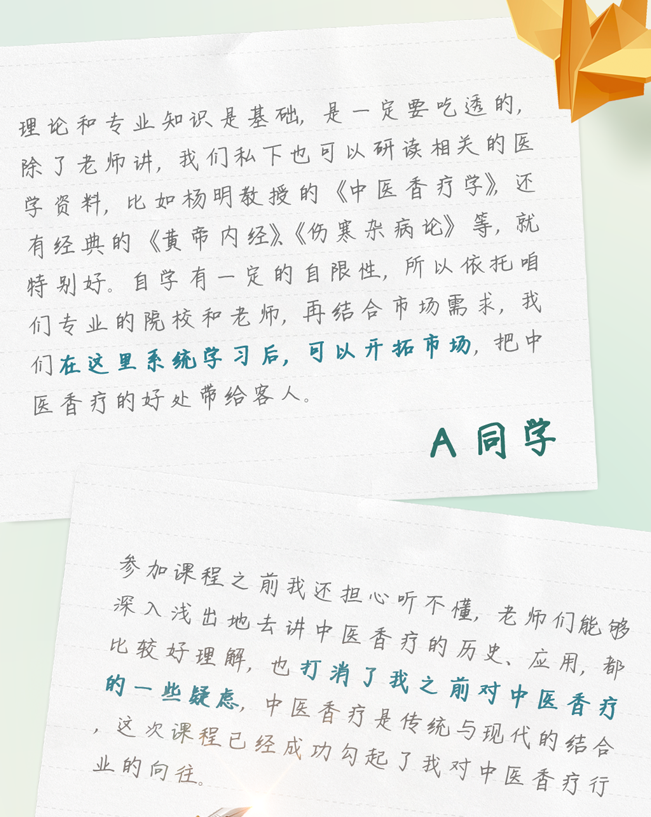 理论和专业知识是基础，是一定要吃透的，
除了老师讲，我们私下也可以研读相关的医
学资料，比如杨明教授的《中医香疗学》，还
有经典的《黄帝内经》、《伤寒杂病论》等，就
特别好。自学有一定的自限性，所以依托咱
们专业的院校和老师，再结合市场需求，我
们在这里系统学习后，可以开拓市场，把中
医香疗的好处带给客人。
A同学
参加课程之前我还担心听不懂，老师们能够
深入浅出地去讲中医香疗的历史、应用，都
比较好理解，也打消了我之前对中医香疗
的一些疑虑，中医香疗是传统与现代的结合
，这次课程已经成功勾起了我对中医香疗行
业的向往。